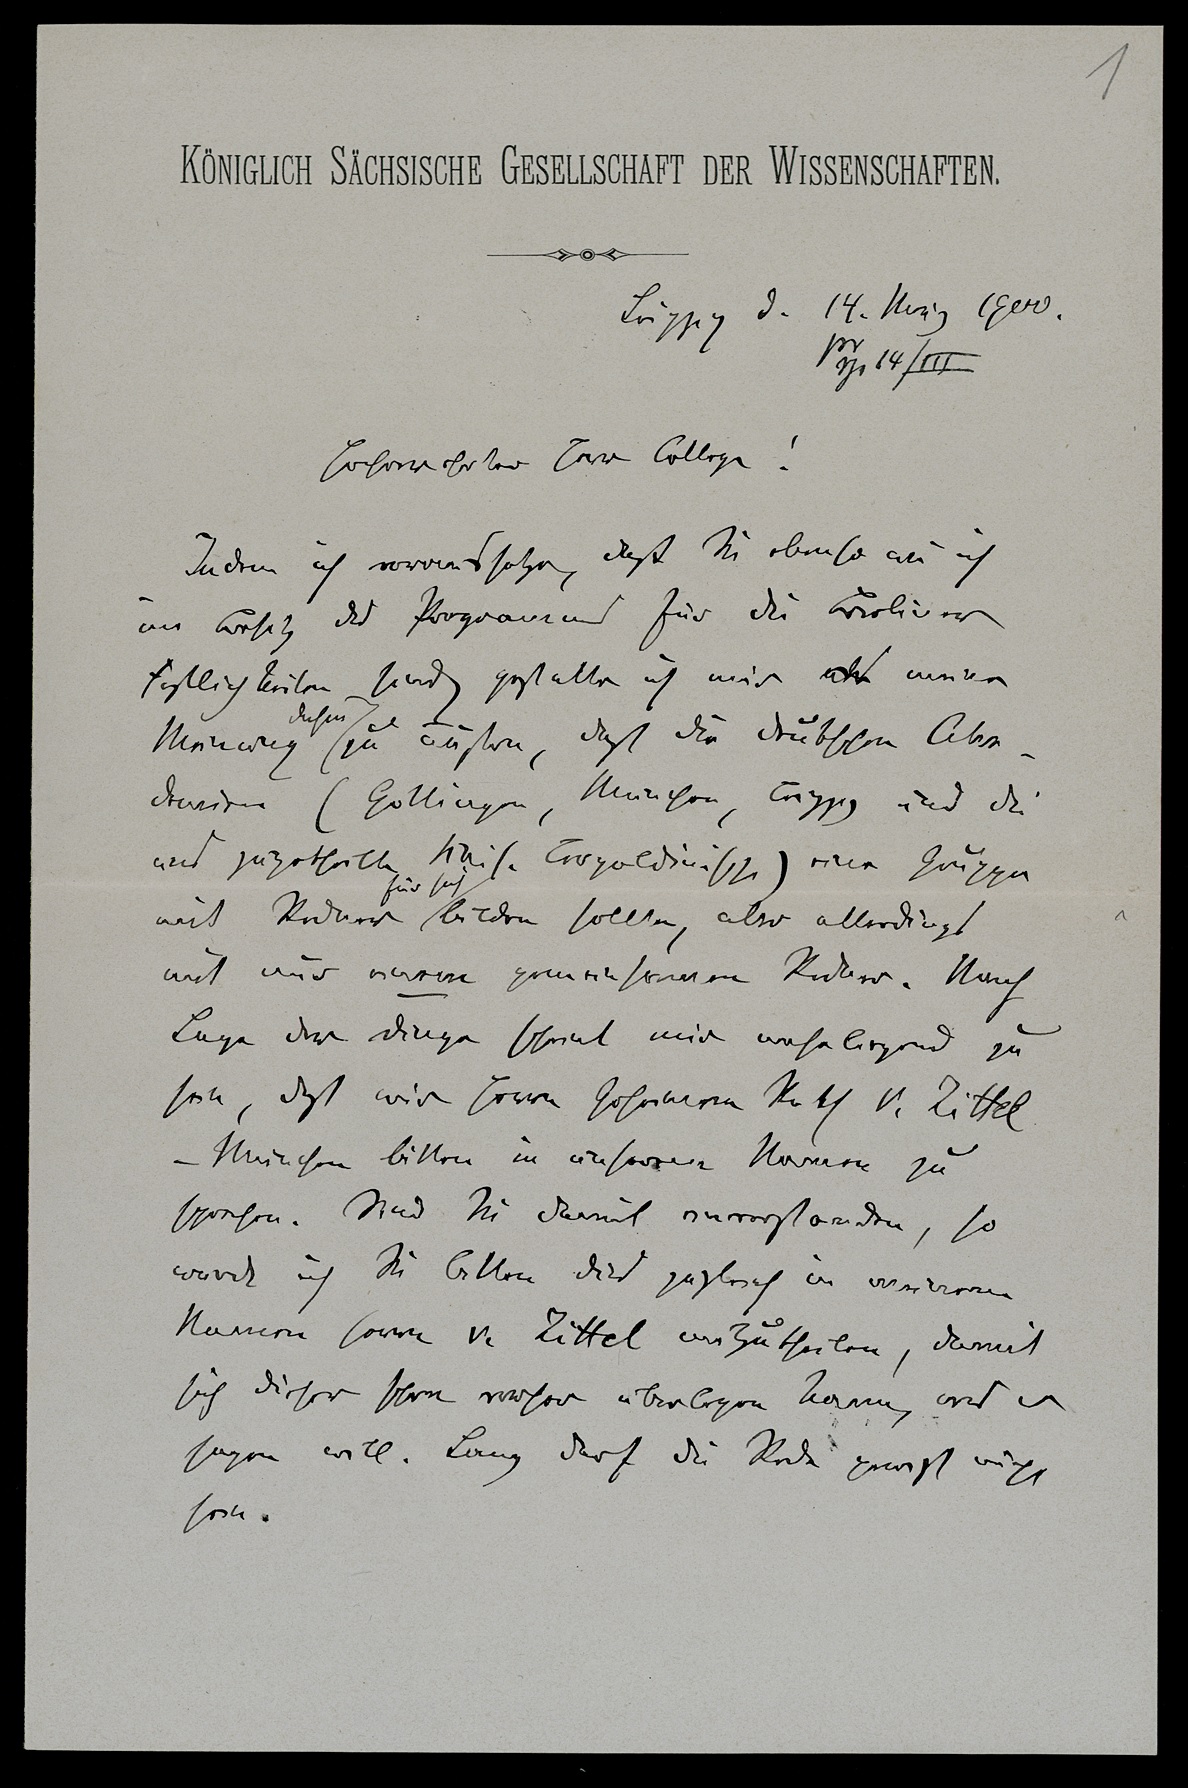 1
KÖNIGLICH SÄCHSISCHE GESELLSCHAFT DER WISSENSCHAFTEN.
Leipzig d. 14. März 1900.
pr
14/III
Hochverehrter Herr College!
Indem ich voraussetze, daß Sie ebenso wie ich
im Besitz des Programms für die Berliner
Festlichkeiten sind, gestatte ich mir als meine
Meinung dahin zu äußern, daß die deutschen Aka-
demien (Göttingen, München, Leipzig und die
uns zugetheilte Leopoldinische) eine Gruppe
mit Redner für sich bilden sollten, aber allerdings
mit nur einem gemeinsamen Redner. Nach
Lage der Dinge scheint mir naheliegend zu
sein, daß wir Herrn Geheimen Rath v. Zittel
– München bitten in unserem Namen zu
sprechen. Sind Sie damit einverstanden, so
würde ich Sie bitten dies zugleich in meinem
Namen Herrn v. Zittel mitzutheilen, damit
sich dieser schon vorher überlegen kann, was er
sagen will. Lang darf die Rede gewiß nicht
sein.